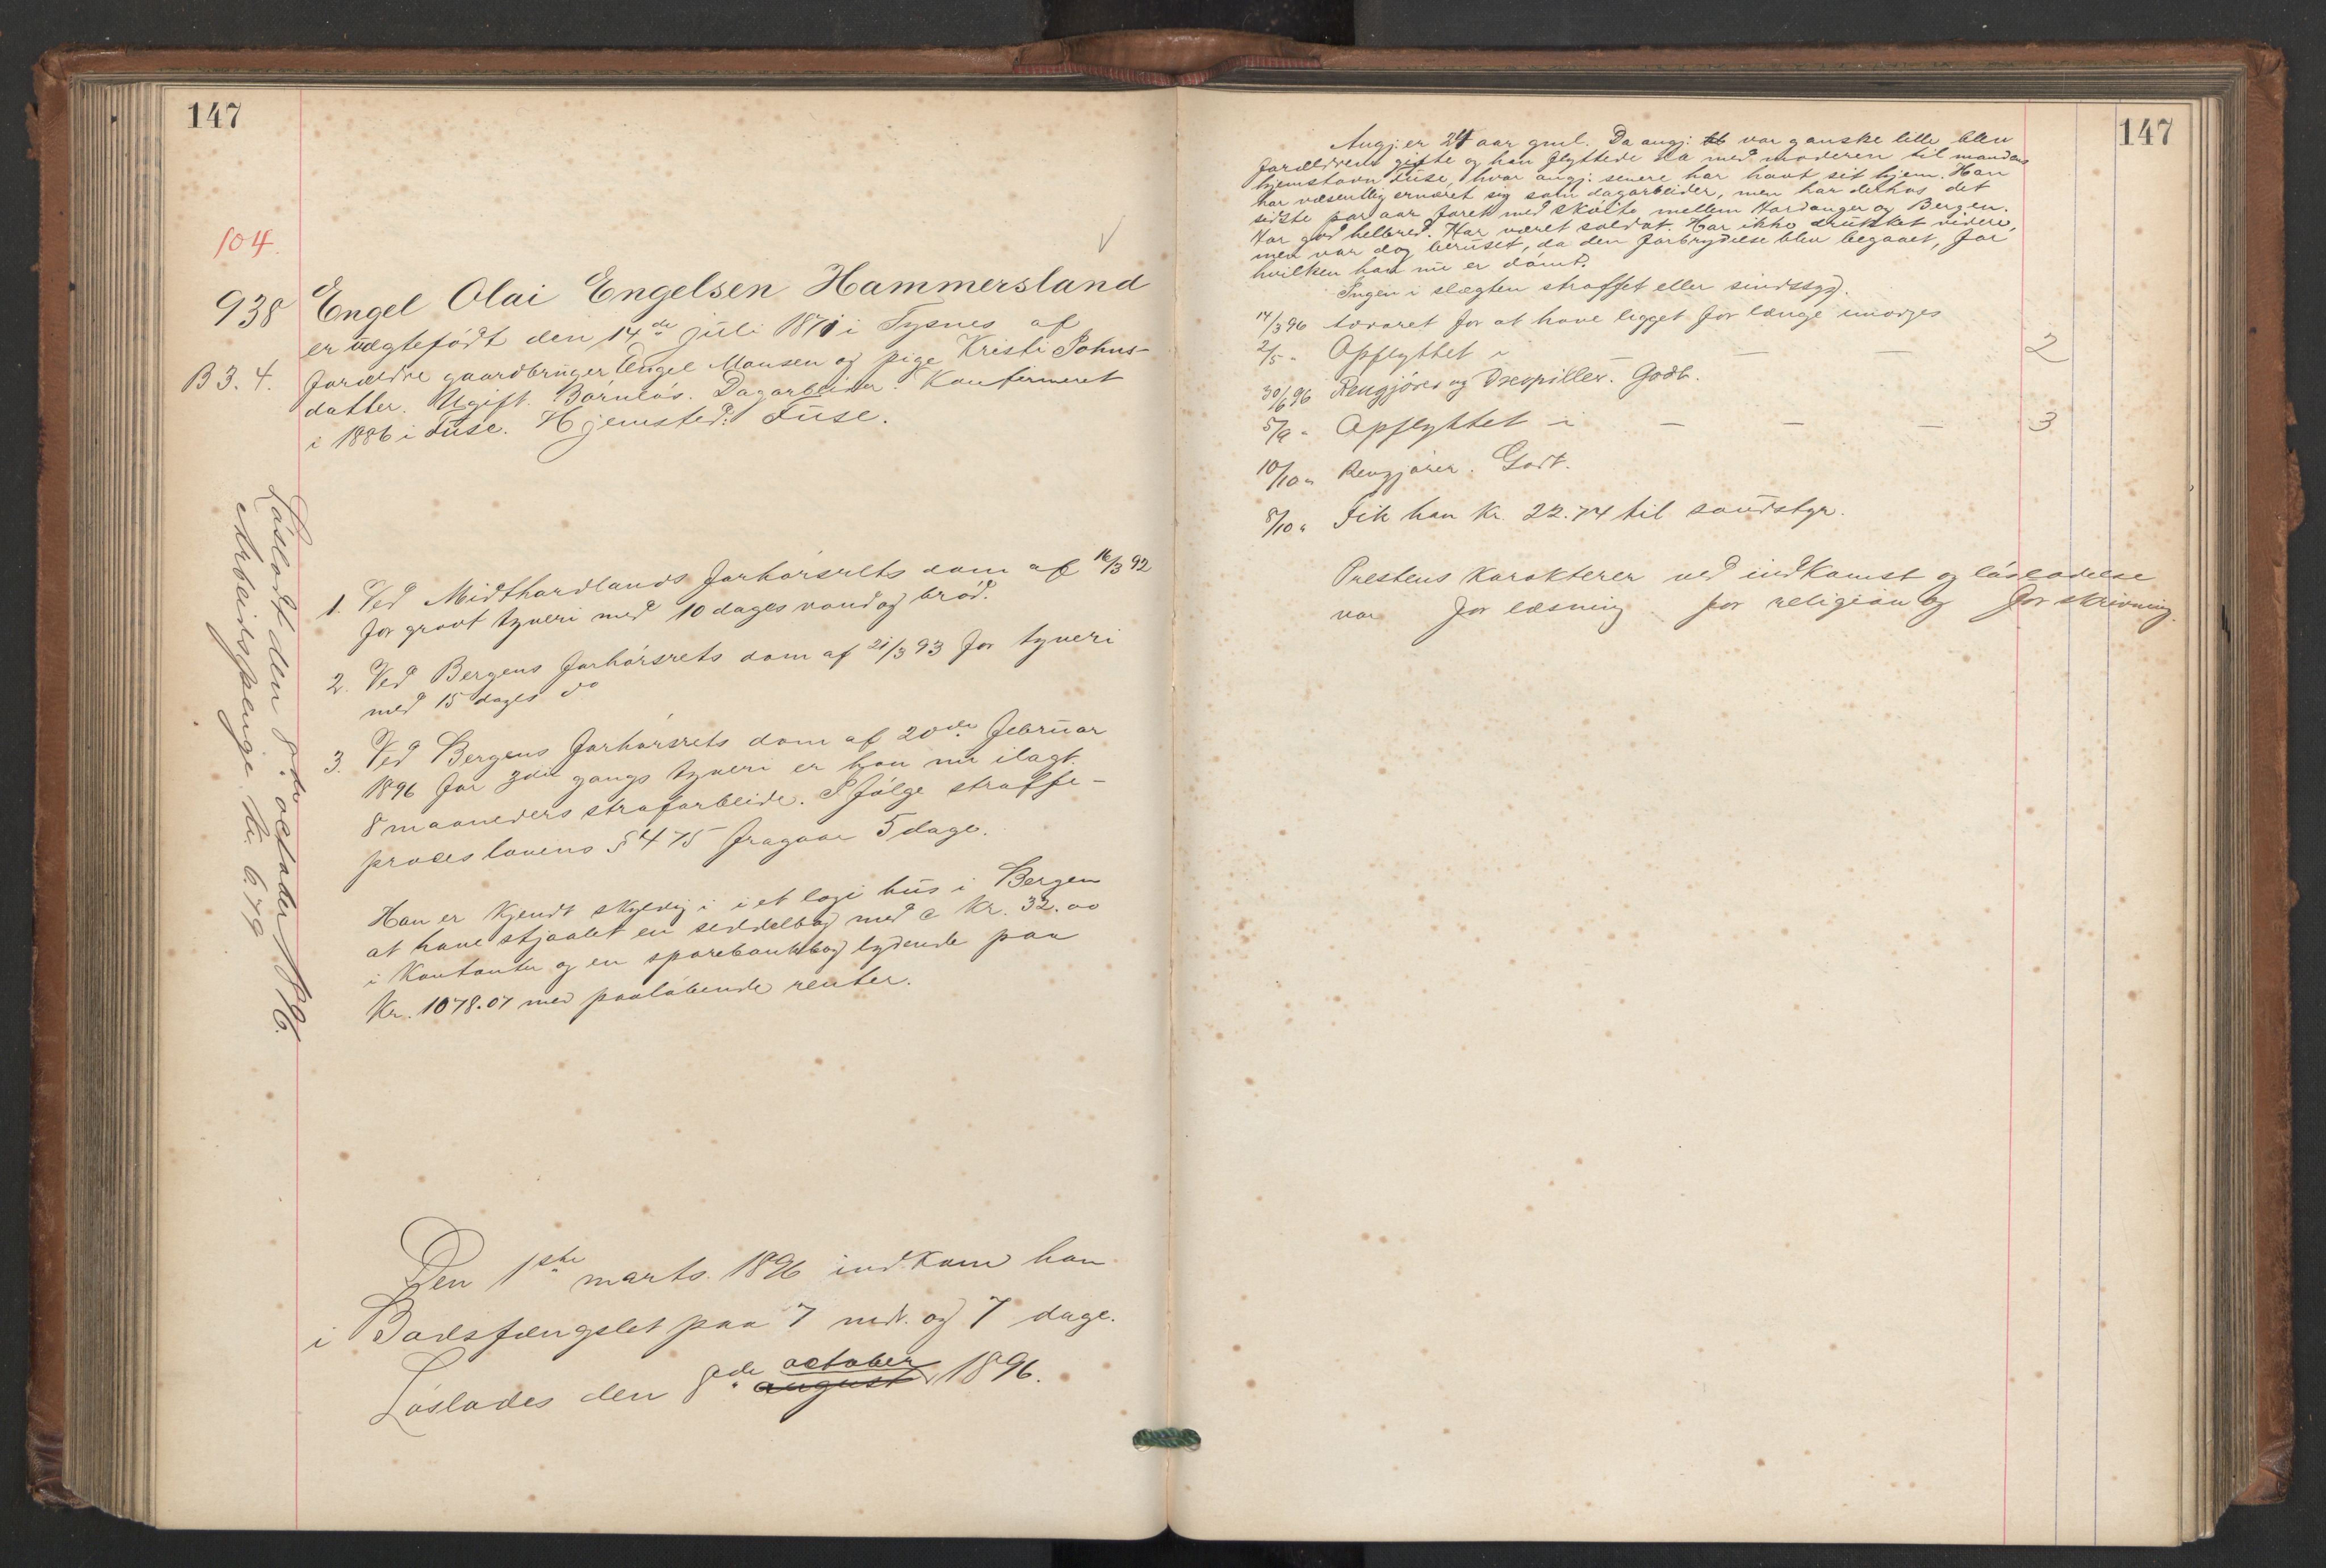 147
104.
938 Engel Olai Engelsen Hammersland
er uægtefödt den 14de juli 1871 i Tysnes af
B 3. 4. forældre gaardbruger Engel Monsen og pige Kristi Johns-
datter. Ugift. Barnlös. Dagarbeider. Konfirmeret
i 1886 i Fuse. Hjemsted: Fuse.
1. Ved Midthordlands forhörsrets dom af 16/3 92
for grovt tyveri med 10 dages vand og bröd.
2. Ved Bergens forhörsrets dom af 21/3 93 for tyveri
med 15 dages do
3. Ved Bergens forhörsrets dom af 20de februar
1896 for 3die gangs tyveri er han nu ilagt
8 maaneders strafarbeide. I fölge straffe-
proces lovens § 475 fragaar 5 dage.
Han er kjendt skyldig i i et logi hus i Bergen
at have stjaalet en seddelbog med c kr. 32.00
i kontanter og en sparebankbog lydende paa
kr. 1078.07 med paalöbende renter.
Den 1ste marts 1896 indkom han
i Bodsfængslet paa 7 mdr. og 7 dage.
Löslades den 8de october august 1896.
Löslodt den 8de october 1896.
Arbeidspenge kr. 6.79
147
Angj. er 24 aar gml. Da angj. var ganske lille blev
forældrene gifte og han flyttede da med moderen til mandens
hjemstavn Fuse, hvor angj. senere har havt sit hjem. Han
har væsentlig ernæret sig som dagarbeider, men har derhos det
sidste par aar faret med skøite mellem Hardanger og Bergen.
Har god helbred. Har været soldat. Har ikke drukket videre,
men var dog beruset, da den forbrydelse blev begaaet, for
hvilken han nu er dömt.
Ingen i slægten straffet eller sindssyg.
14/3 96 Advaret for at have ligget for længe imorges
2/5 " Opflyttet i — — 2
30/6 96 Rengjörer og Drevpiller. Godt.
5/9 " Opflyttet i — — — 3
10/10 " Rengjörer. Godt.
8/10 " Fik han kr. 22.74 til udstyr.
Prestens karakterer ved indkomst og lösladelse
var for læsning for religion og for skrivning.